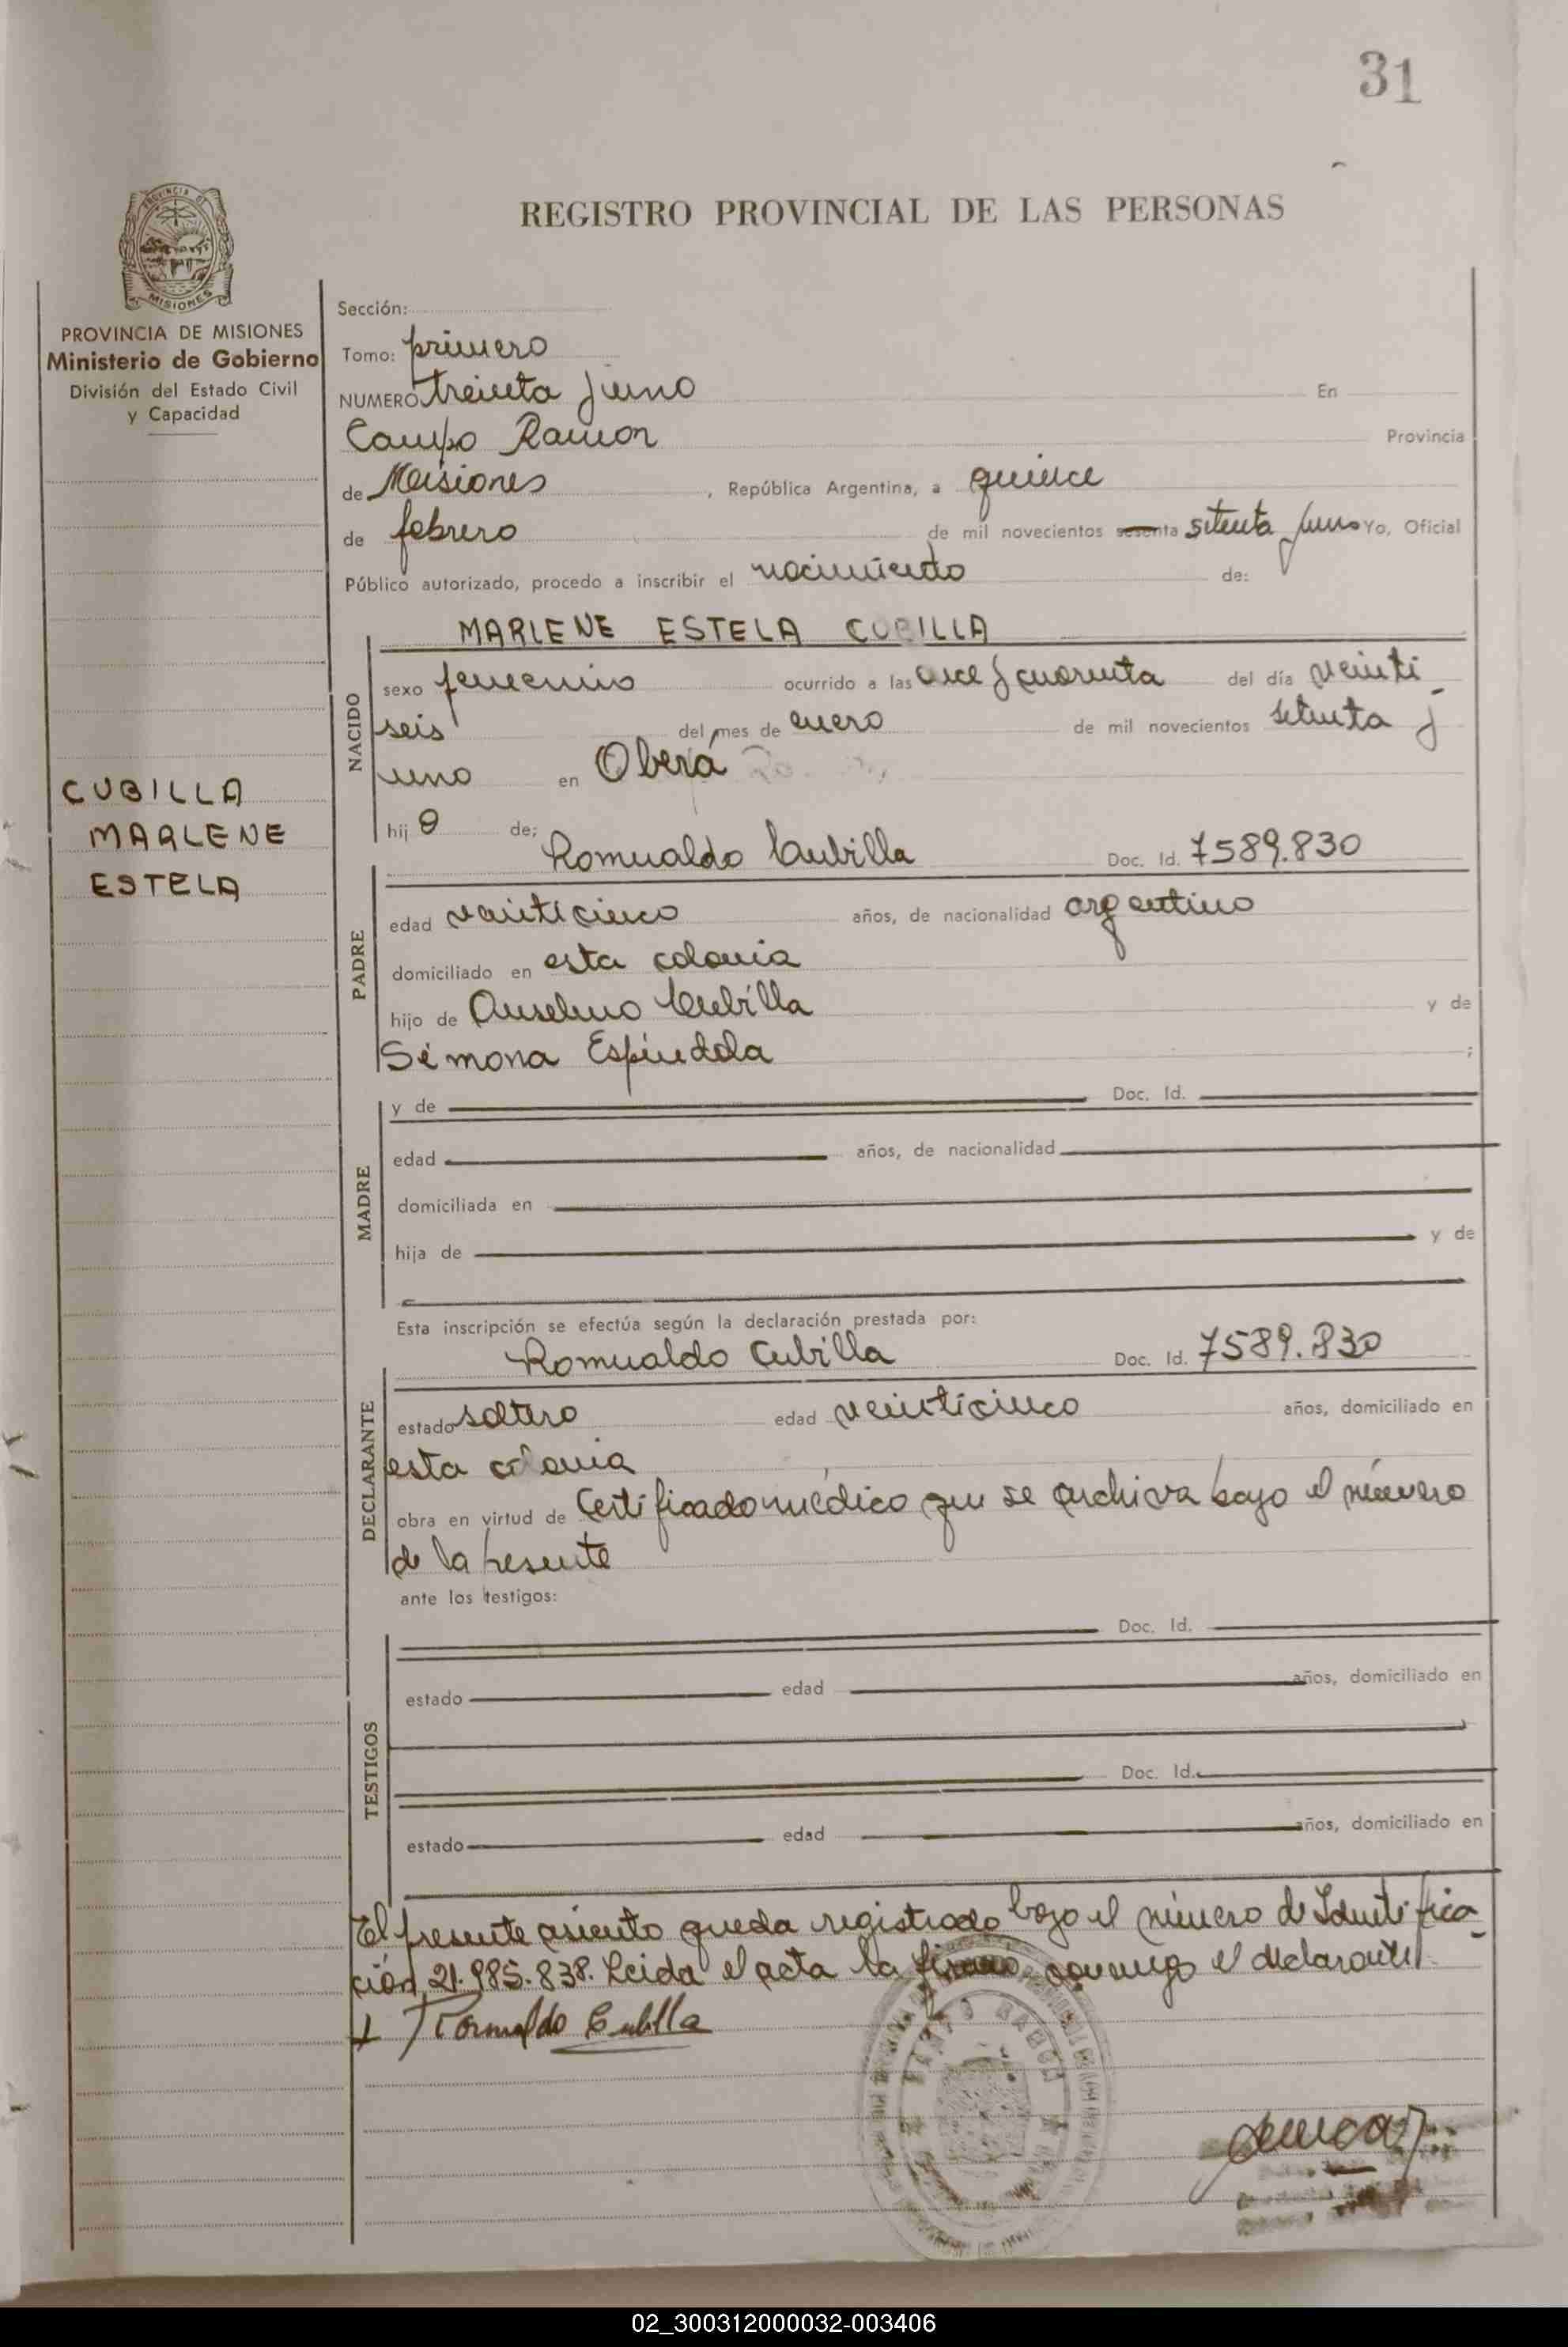 31
REGISTRO PROVINCIAL DE LAS PERSONAS
PROVINCIA DE MISIONES
Ministerio de Gobierno
División del Estado Civil
y Capacidad
CUBILLA
MARLENE
ESTELA
Sección:
Tomo: primero
NUMERO treinta y uno En
Campo Ramon Provincia
de Misiones, República Argentina, a quince
de febrero de mil novecientos sesenta setenta y uno Yo, Oficial
Público autorizado, procedo a inscribir el nacimiento de:
MARLENE ESTELA CUBILLA
NACIDO
sexo femenino ocurrido a las once y cuarenta del día veinti
seis del mes de enero de mil novecientos setenta y
uno en Oberá
hij a de:
Romualdo Cubilla Doc. Id. 7589.830
PADRE
edad veinticinco años, de nacionalidad argentino
domiciliado en esta colonia
hijo de Anselmo Cubilla y de
Simona Espíndola ;
MADRE
y de Doc. Id.
edad años, de nacionalidad
domiciliada en
hija de y de
Esta inscripción se efectúa según la declaración prestada por:
Romualdo Cubilla Doc. Id. 7589.830
DECLARANTE
estado soltero edad veinticinco años, domiciliado en
esta colonia
obra en virtud de Certificado médico que se archiva bajo el número
de la presente
ante los testigos:
TESTIGOS
Doc. Id.
estado edad años, domiciliado en
Doc. Id.
estado edad años, domiciliado en
El presente asiento queda registrado bajo el número de Identifica-
ción 21.985.838. Leida el acta la firma conmigo el declarante.
Romualdo Cubilla
02_300312000032-003406